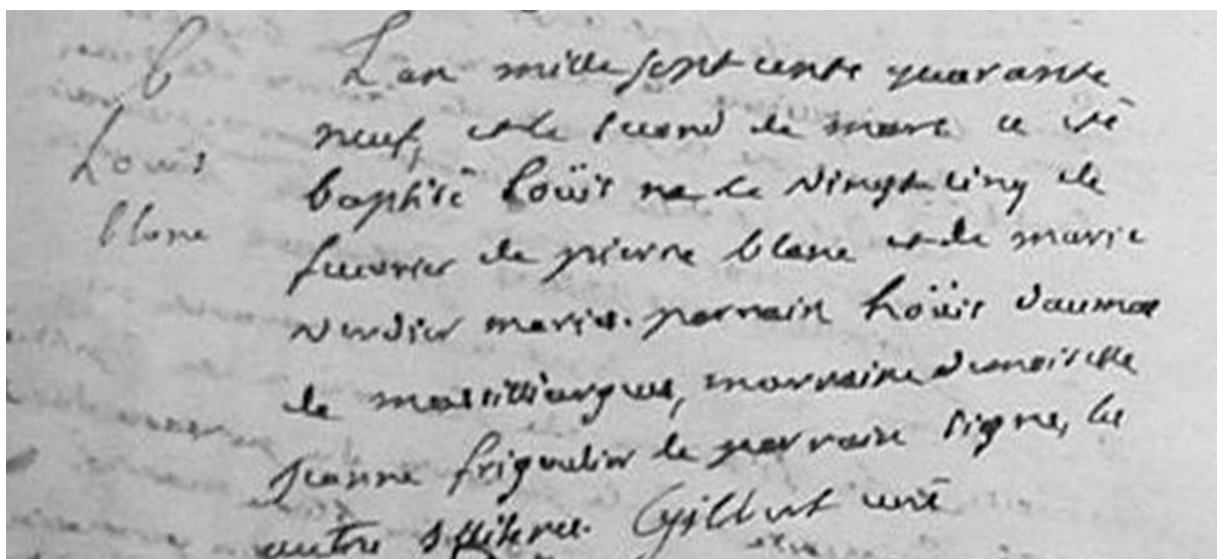 b
Louis
blanc
L'an mille sept cents quarante
neuf, et le second de mars a été
baptisé Loüis né le vingt cinq de
fevrier de pierre blanc et de marie
verdier mariés. parrain Loüis daumas
de massilliargues, marraine demoiselle
jeanne le parrain signé, les
autres illiterés. Gilbert curé